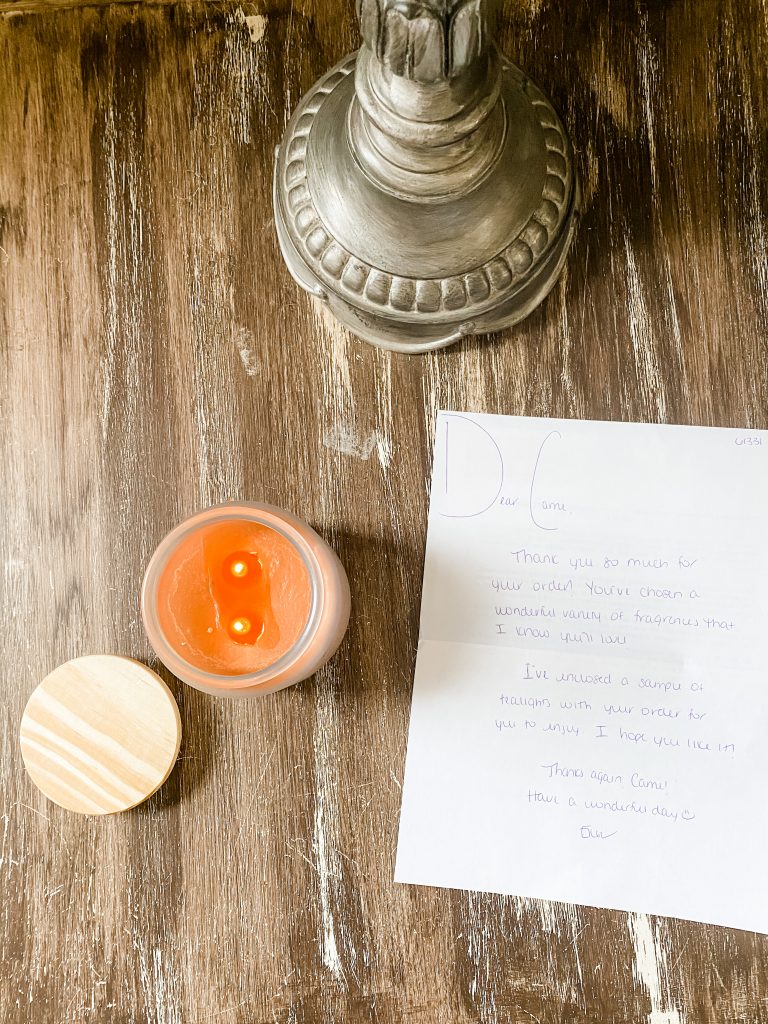 61331
Dear Came,
Thank you so much for
your order! You've chosen a
wonderful variety of fragrances that
I know you'll love!
I've enclosed a sample of
tealights with your order for
you to enjoy. I hope you like it!
Thanks again, Came!
Have a wonderful day☺